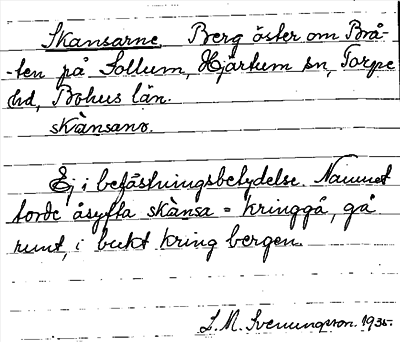 Skansarne. Berg öster om Brå-
-ten på Sollum, Hjärtum sn, Torpe
hd, Bohus län.
skànsanɘ.
Ej i befästningsbetydelse. Namnet
torde åsyfta skànsa = kringgå, gå
runt, i bukt kring bergen.
L. M. Svenungsson. 1935.